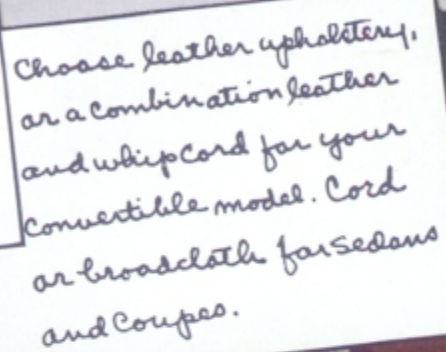 Choose leather upholstery,
or a combination leather
and whipcord for your
convertible model. Cord
or broadcloth for Sedans
and Coupes.